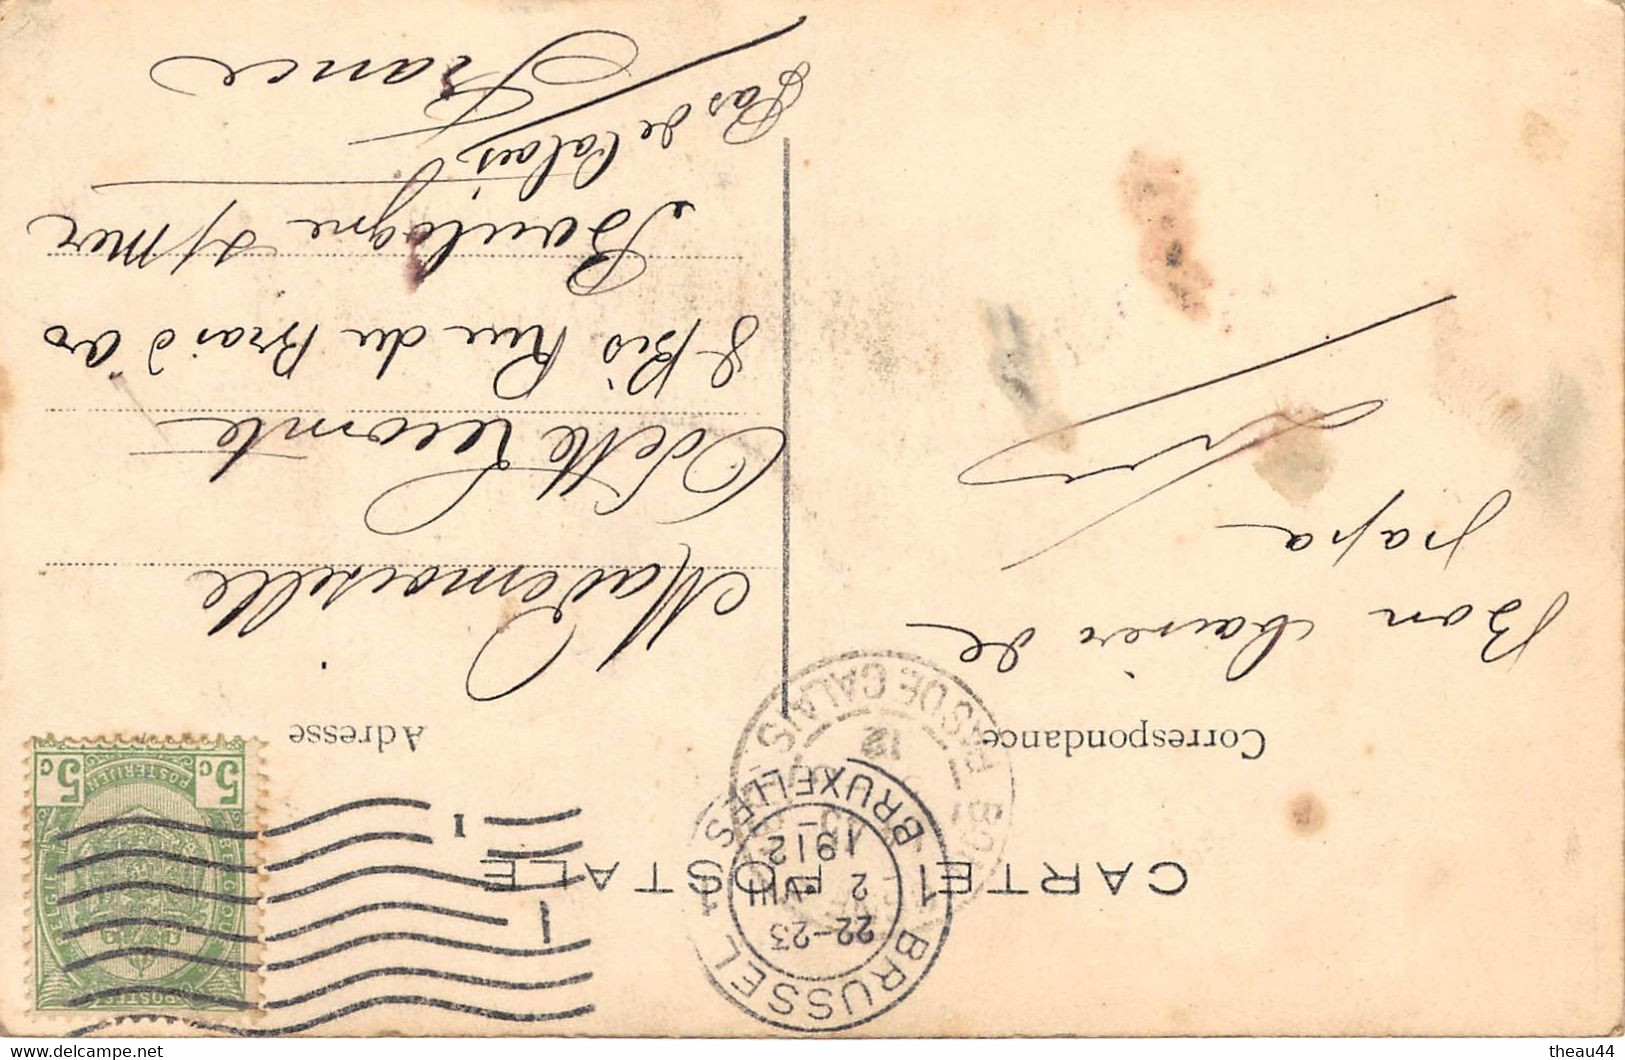 CARTE POSTALE
Correspondance
Adresse
Bon baiser de
papa
Mademoiselle
Odette Lecomte
8 Bis Rue du Bras d'or
Boulogne s/mer
Pas de Calais
France
BRUSSEL 1
22-23
2 VIII
1912
BRUXELLES
PAS DE CALAIS
12
POSTES
BELGIE
BELGIQUE
POSTERIJEN
5c 5c
1
theau44